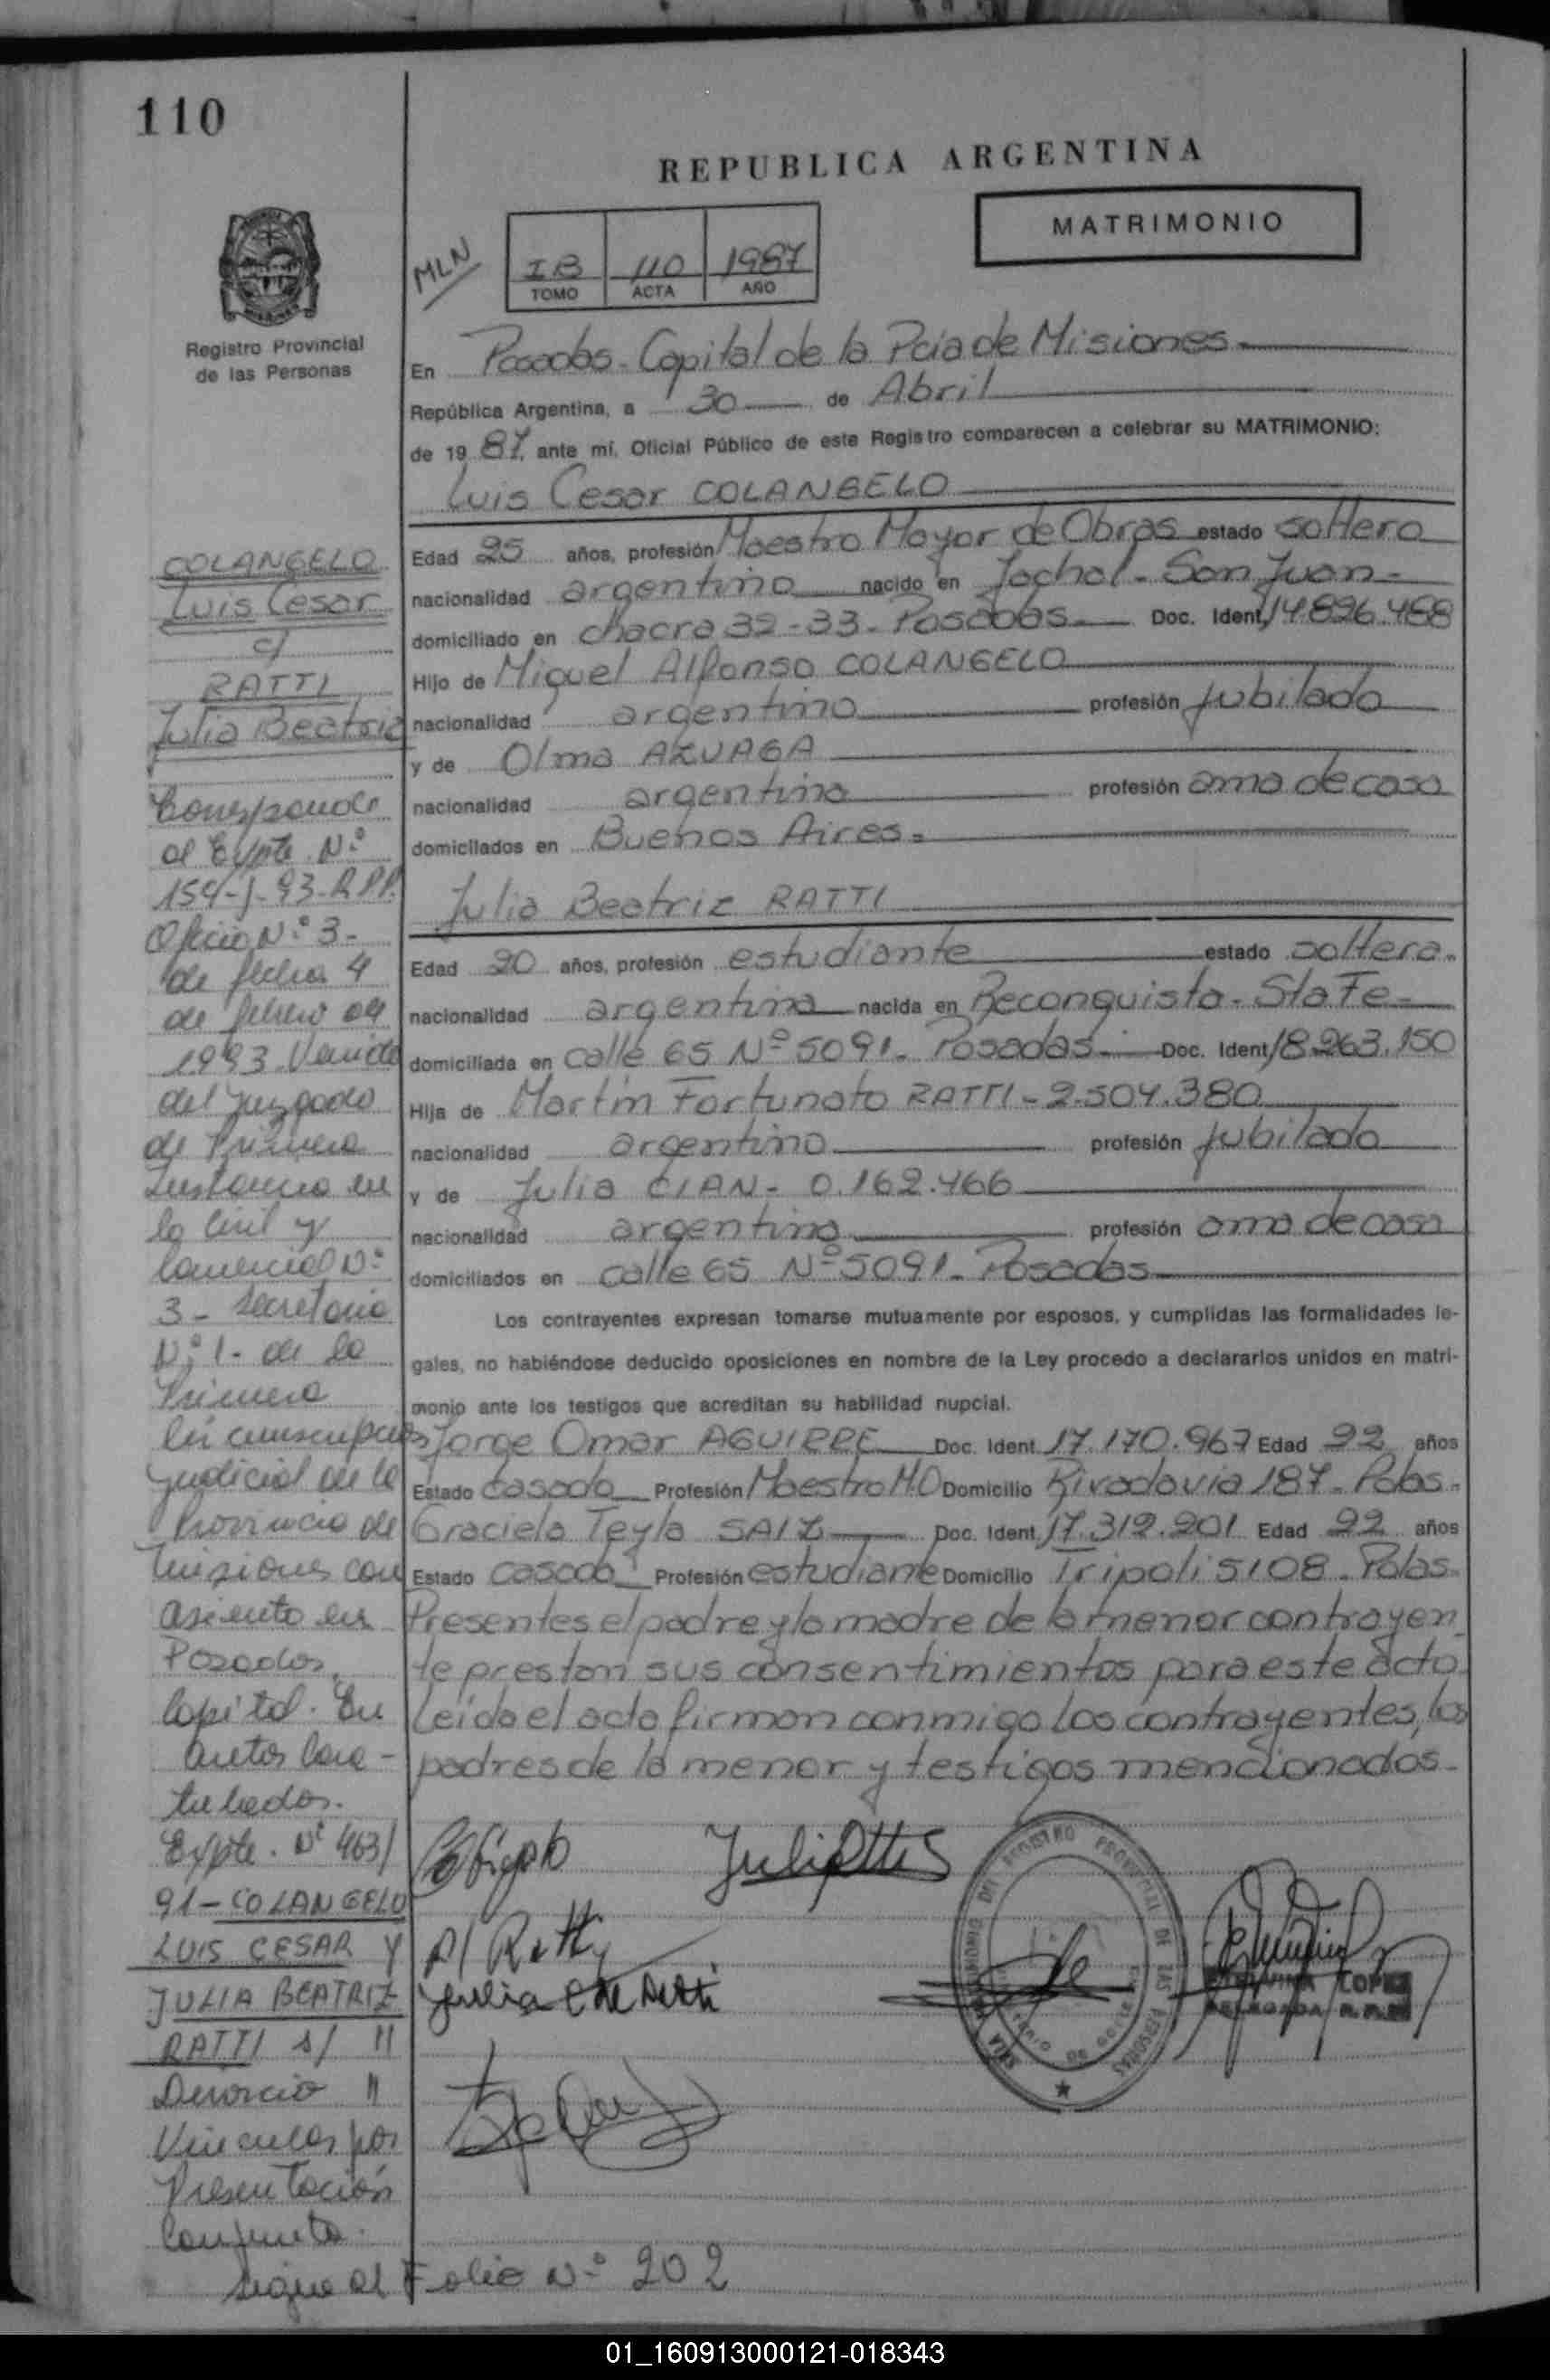 110
REPUBLICA ARGENTINA
MATRIMONIO
MLN
IB 110 1987
TOMO ACTA AÑO
Registro Provincial
de las Personas
En Posadas - Capital de la Pcia de Misiones
República Argentina, a 30 de Abril
de 19 87, ante mí, Oficial Público de este Registro comparecen a celebrar su MATRIMONIO:
Luis Cesar COLANGELO
Edad 25 años, profesión Maestro Mayor de Obras estado soltero
nacionalidad argentino nacido en Jachal - San Juan -
domiciliado en chacra 32-33 - Posadas - Doc. Ident. 14.826.488
Hijo de Miguel Alfonso COLANGELO
nacionalidad argentino profesión jubilado
y de Olma AZUAGA
nacionalidad argentina profesión ama de casa
domiciliados en Buenos Aires -
Julia Beatriz RATTI
Edad 20 años, profesión estudiante estado soltera -
nacionalidad argentina nacida en Reconquista - Sta Fe -
domiciliada en calle 65 Nº 5091 - Posadas - Doc. Ident. 18.263.150
Hija de Martín Fortunato RATTI - 2.504.380
nacionalidad argentino profesión jubilado
y de Julia CIAN - 0.162.466
nacionalidad argentina profesión ama de casa
domiciliados en calle 65 Nº 5091 - Posadas
Los contrayentes expresan tomarse mutuamente por esposos, y cumplidas las formalidades le-
gales, no habiéndose deducido oposiciones en nombre de la Ley procedo a declararlos unidos en matri-
monio ante los testigos que acreditan su habilidad nupcial.
Jorge Omar AGUIRRE Doc. Ident. 17.170.967 Edad 22 años
Estado casado Profesión Maestro M.O Domicilio Rivadavia 187 - Pdas -
Graciela Teyla SAIZ Doc. Ident. 17.312.201 Edad 22 años
Estado casada Profesión estudiante Domicilio Tripoli 5108 - Pdas -
Presentes el padre y la madre de la menor contrayen
te prestan sus consentimientos para este acto
Leída el acta firman conmigo los contrayentes, los
padres de la menor y testigos mencionados -
COLANGELO
Luis Cesar
c/
RATTI
Julia Beatriz
Corresponde
al Expte. Nº
154-J-93-R.P.P.
Oficio Nº 3 -
de fecha 4
de febrero de
1993. Venido
del Juzgado
de Primera
Instancia en
lo Civil y
Comercial Nº
3 - Secretaria
Nº 1 - de la
Primera
Circunscripción
Judicial de la
Provincia de
Misiones con
asiento en
Posadas,
Capital. En
autos Cara-
tulados.
Expte. Nº 463/
91 - COLANGELO
LUIS CESAR Y
JULIA BEATRIZ
RATTI s/ "
Divorcio "
Vincular por
Presentación
Conjunta.
Sigue al Folio Nº 202
Julia C de Ratti
REGISTRO PROVINCIAL DE LAS PERSONAS
LOPEZ
DELEGADA R.P.P.
01_160913000121-018343